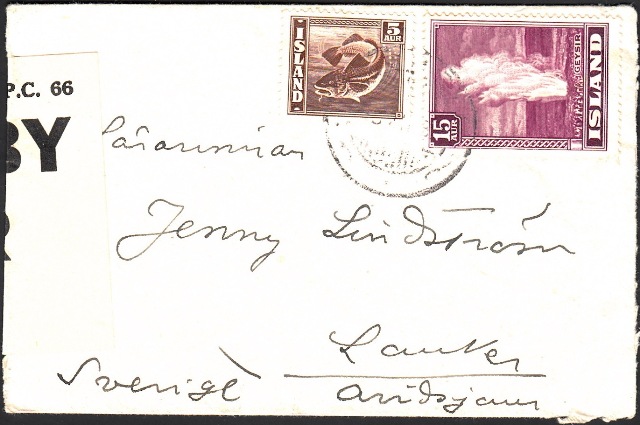 5
AUR
ISLAND
15
AUR
GEYSIR
ISLAND
P.C. 66
BY
R
Jenny Lindström
Lanker
Sverige
Arvidsjaur